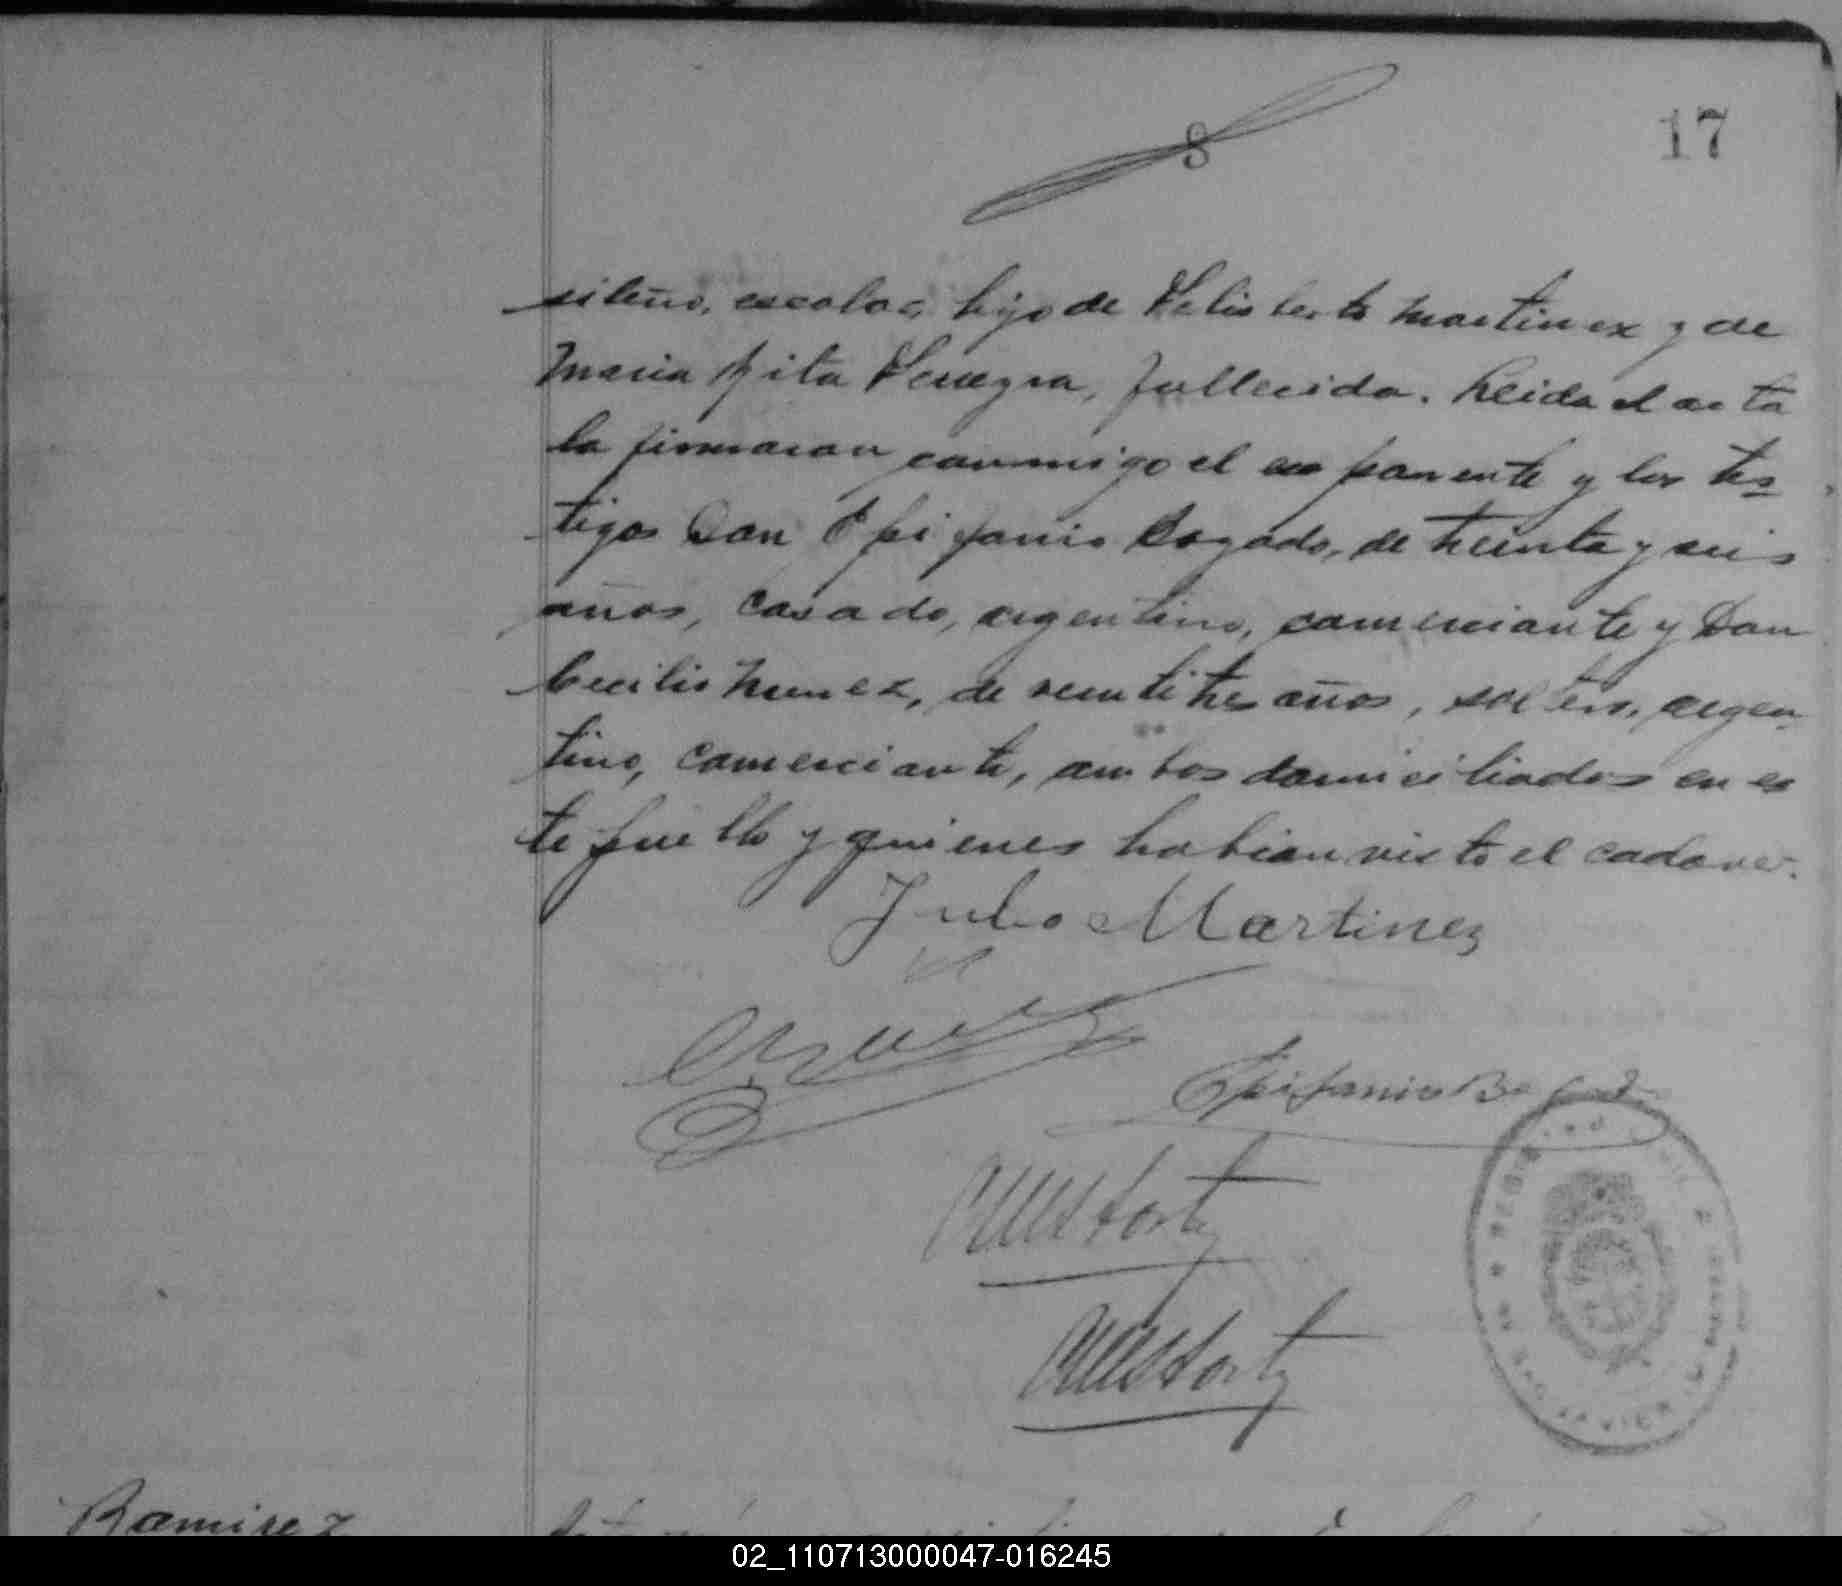 8
17
sileño, escolar, hijo de Felisberto Martinez y de
Maria Rita Ferreyra, fallecida. Leida el acta
la firmaron conmigo el exponente y los tes
tigos Don Epifanio Bogado, de treinta y seis
años, casado, argentino, comerciante y Don
Cecilio Nunez, de veintitres años, soltero, argen
tino, comerciante, ambos domiciliados en es
te pueblo y quienes habian visto el cadaver.
Julio Martinez
Epifanio Bogado
REGISTRO CIVIL
SAN JAVIER
Ramirez
02_110713000047-016245